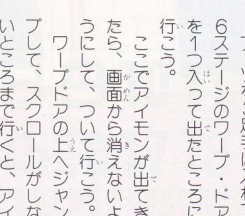 6ステージのワープ・ドア
を1つ入って出たところに
行こう。
ここでアイモンが出てき
たら、画面から消えないよ
うにして、ついて行こう。
ワープドアの上へジャン
プして、スクロールがしな
いところまで行くと、アイ